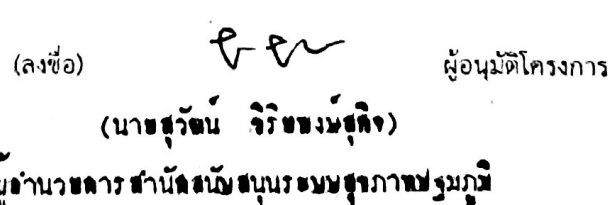 (ลงชื่อ) ผู้อนุมัติโครงการ
(นายสุวัฒน์ วิริยพงษ์สุกิจ)
ผู้อำนวยการสำนักสนับสนุนระบบสุขภาพปฐมภูมิ